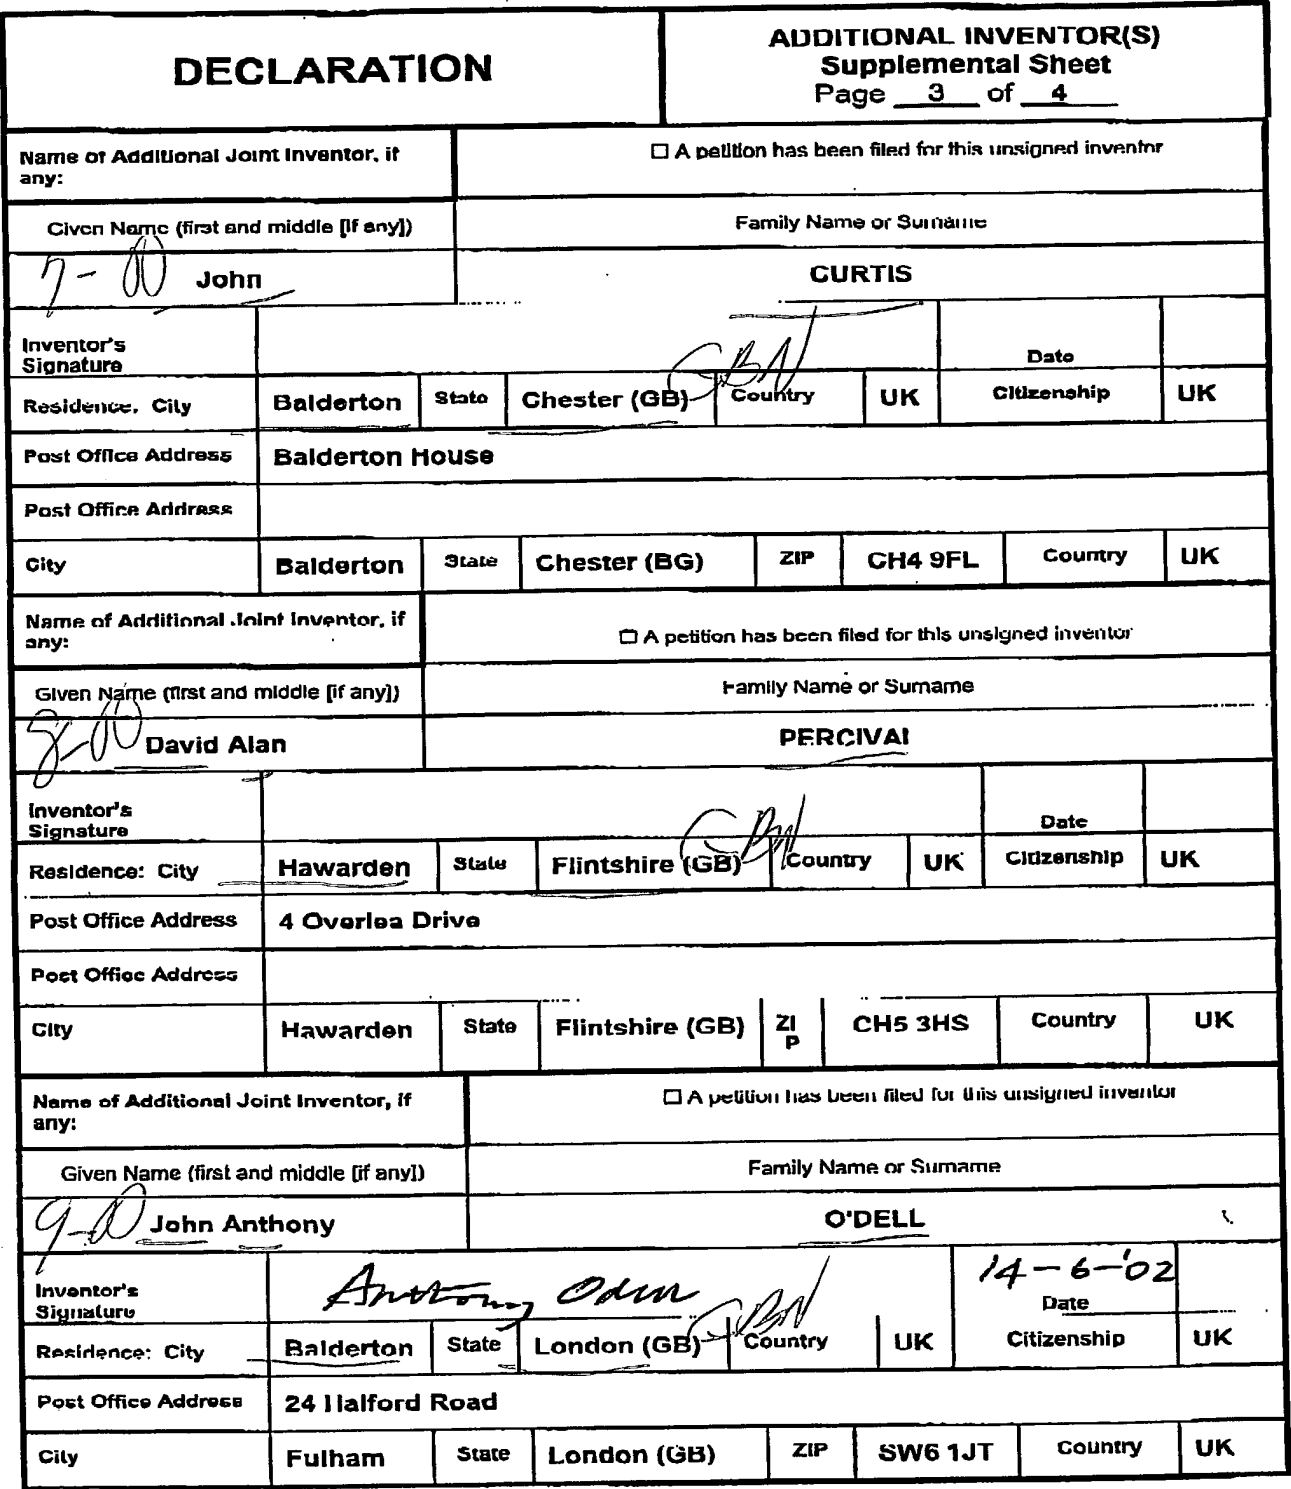 DECLARATION
ADDITIONAL INVENTOR(S)
Supplemental Sheet
Page 3 of 4
Name of Additional Joint Inventor, if any:
☐ A petition has been filed for this unsigned inventor
Given Name (first and middle [if any])
Family Name or Surname
7-00 John
CURTIS
Inventor's Signature
Date
GBN
Residence, City Balderton State Chester (GB) Country UK Citizenship UK
Post Office Address Balderton House
Post Office Address
City Balderton State Chester (BG) ZIP CH4 9FL Country UK
Name of Additional Joint Inventor, if any:
☐ A petition has been filed for this unsigned inventor
Given Name (first and middle [if any])
Family Name or Surname
8-00 David Alan
PERCIVAl
Inventor's Signature
Date
GBN
Residence: City Hawarden State Flintshire (GB) Country UK Citizenship UK
Post Office Address 4 Overlea Drive
Post Office Address
City Hawarden State Flintshire (GB) ZIP CH5 3HS Country UK
Name of Additional Joint Inventor, if any:
☐ A petition has been filed for this unsigned inventor
Given Name (first and middle [if any])
Family Name or Surname
9-00 John Anthony
O'DELL
Inventor's Signature Anthony Odell
14-6-'02
Date
GBN
Residence: City Balderton State London (GB) Country UK Citizenship UK
Post Office Address 24 Halford Road
City Fulham State London (GB) ZIP SW6 1JT Country UK